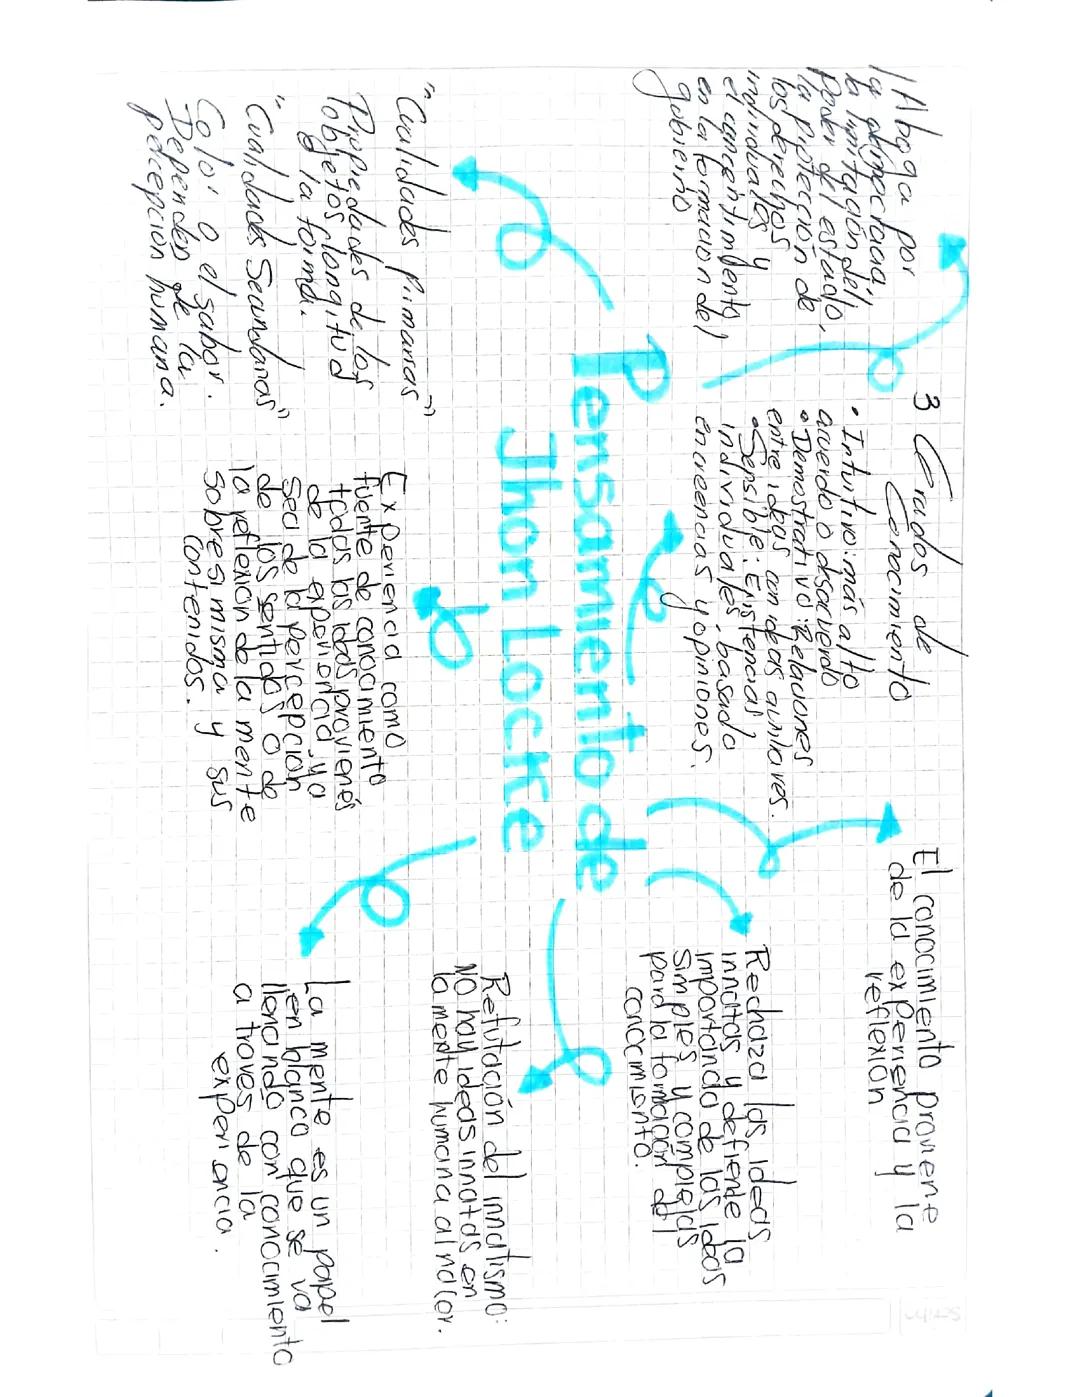 Pensamiento de
Jhon Locke
Aboga por
la democracia,
la limitación del
poder del estado,
la protección de
los derechos
individuales y
el concentimiento
en la formación del
gobierno
3 Grados de
Conocimiento
• Intuitivo: más alto
acuerdo o desacuerdo
• Demostrativo: Relaciones
entre ideas con ideas auxiliares.
• Sensible: Existencias
individuales, basado
en creencias y opiniones.
El conocimiento proviene
de la experiencia y la
reflexión
Rechaza las ideas
innatas y defiende la
importancia de las ideas
simples y complejas
para la formación del
conocimiento.
Refutación del innatismo:
No hay ideas innatas en
la mente humana al nacer.
La mente es un papel
en blanco que se va
llenando con conocimiento
a traves de la
experiencia.
Experiencia como
fuente de conocimiento
todas las ideas provienen
de la experiencia, ya
sea de la percepción
de los sentidos o de
la reflexión de la mente
sobre si misma y sus
contenidos.
"Cualidades Primarias"
Propiedades de los
objetos, longitud
la forma.
"Cualidades Secundarias"
Color o el sabor.
Dependen de la
percepción humana.